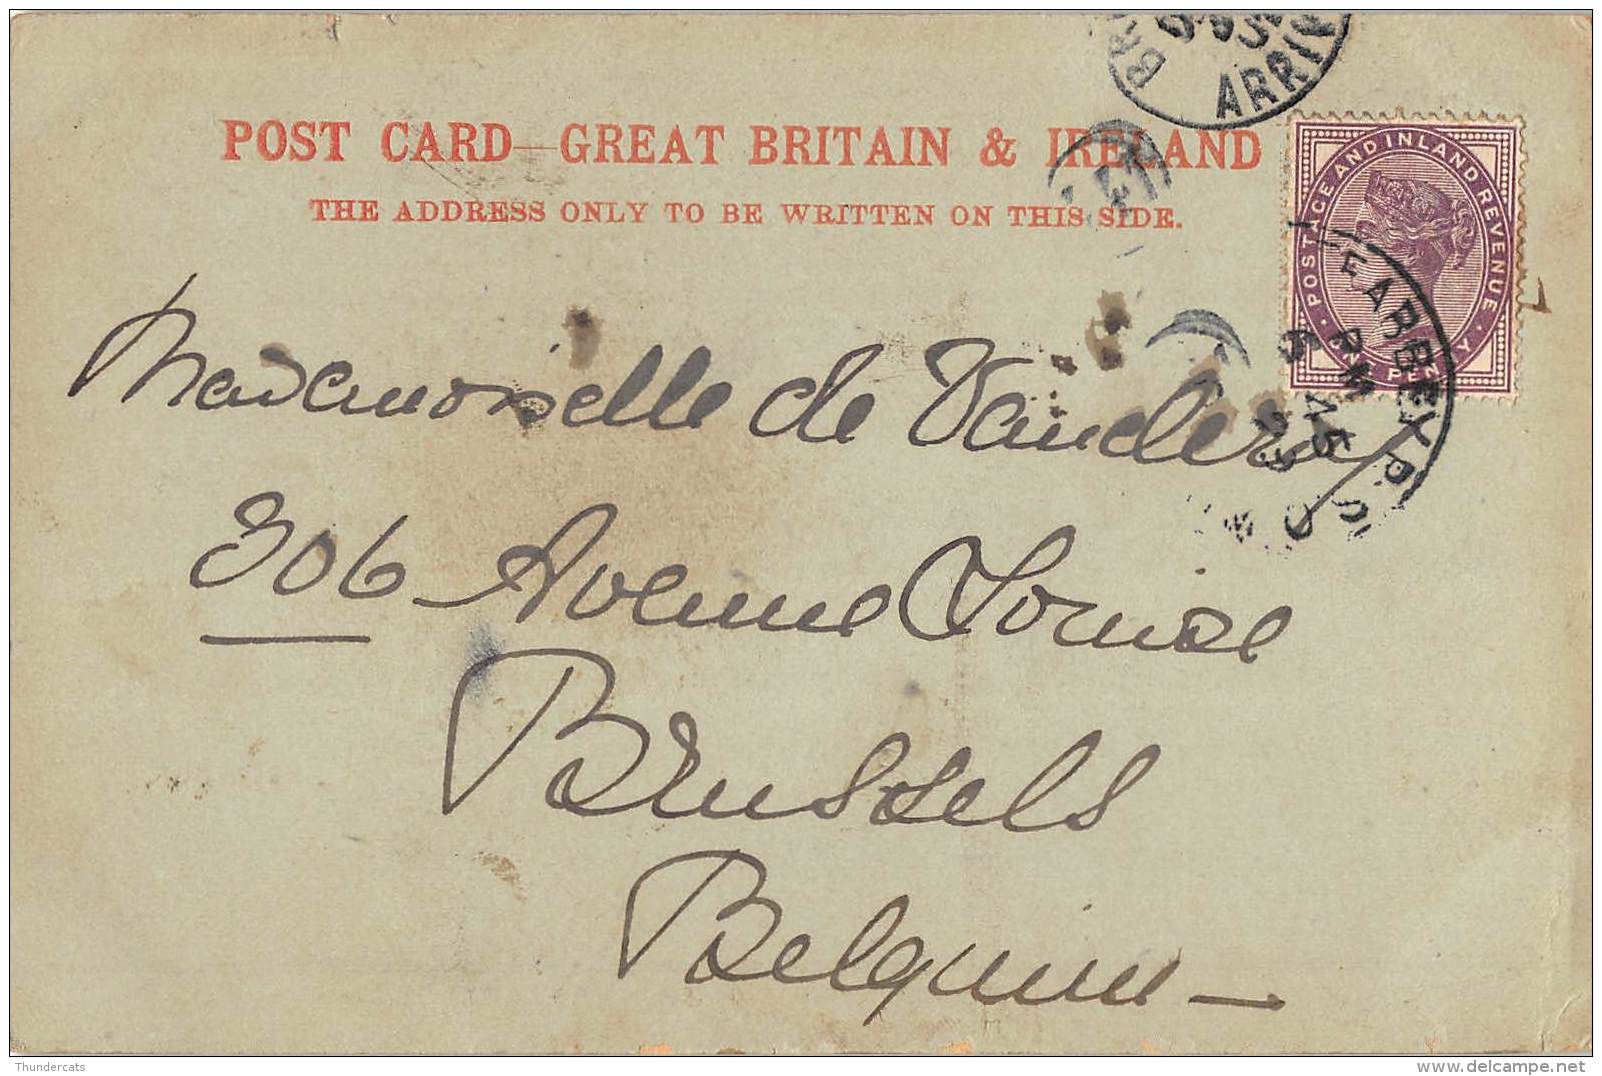 ARRIV
POST CARD—GREAT BRITAIN & IRELAND
THE ADDRESS ONLY TO BE WRITTEN ON THIS SIDE.
POSTAGE AND INLAND REVENUE
Mademoiselle de
306 Avenue Louise
Brussels
Belgium —
Thundercats
www.delcampe.net